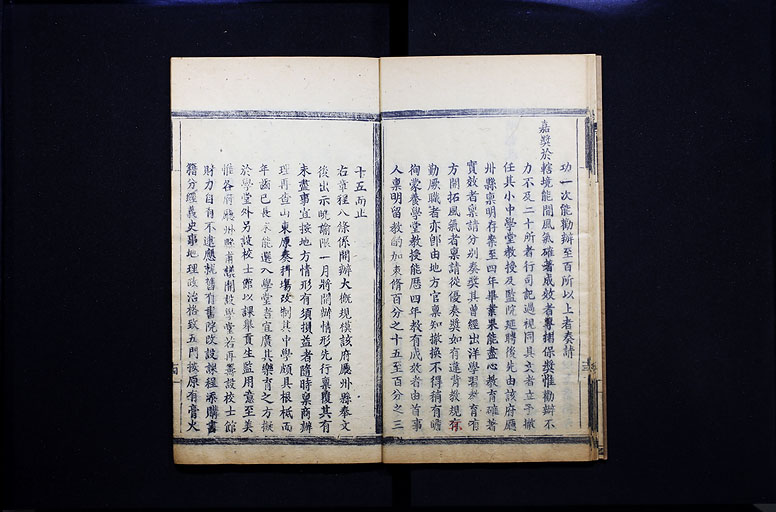 功一次能勸辦至百所以上者奏請
嘉獎於轄境能開風氣確著成效者專摺保獎惟勸辦不
力不及二十所者行司記過視同具文者立予撤
任其小中學堂教授及監院延聘後先由該府廳
州縣稟明存案至四年畢業果能盡心教育確著
實效者稟請分別奏獎其曾經出洋學習教育有
方開拓風氣者稟請從優奏獎如有違背教規有
勤厥職者亦卽由地方官稟知撤換不得稍有瞻
徇蒙養學堂教授能歷四年教有成效者由首事
人稟明留教酌加束脩百分之十五至百分之三
十五而止
右章程八條係開辦大概規模該府廳州縣奉文
後出示曉諭限一月將開辦情形先行稟覆其有
未盡事宜按地方情形有須損益者隨時稟商辦
理再查山東原奏科場改制其中學頗具根柢而
年齒已長未能選入學堂者宜廣其樂育之方擬
於學堂外另設校士館以課舉貢生監用意至美
惟各府廳州縣甫議開設學堂若再籌設校士館
財力自有不逮應就舊有書院改設課程添購書
籍分經義史事地理政治格致五門按原有膏火